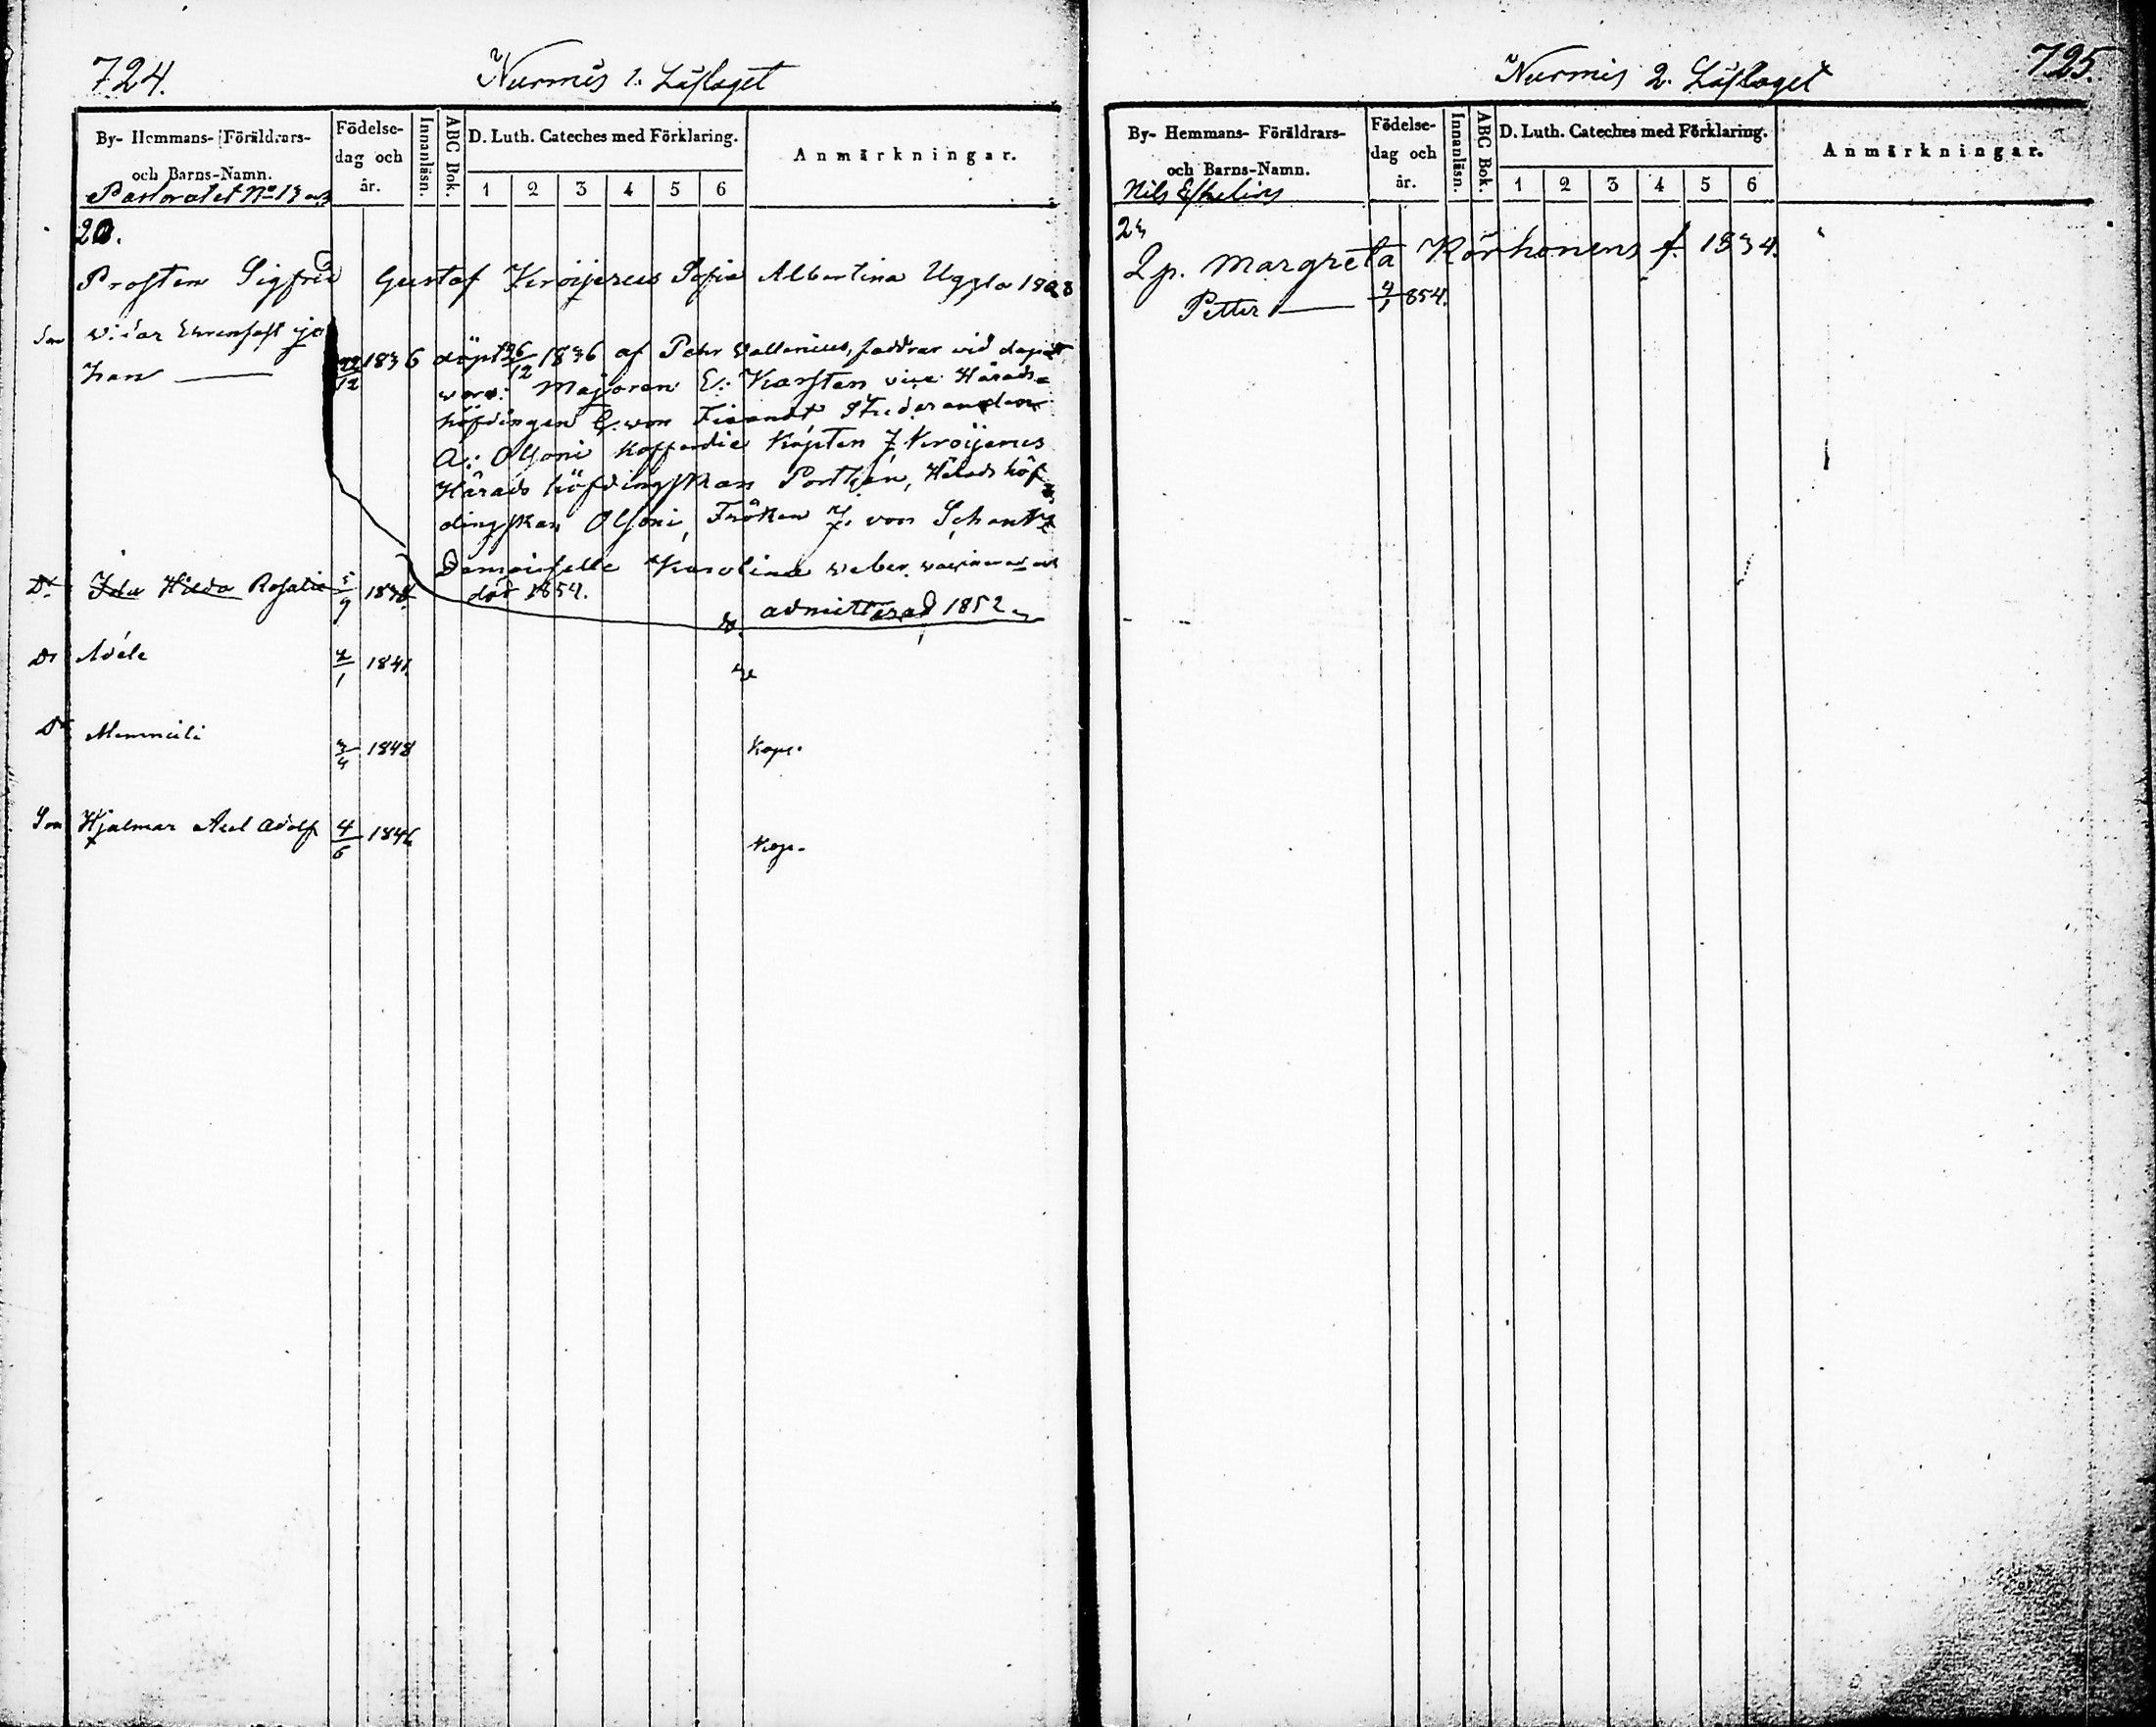 724.
Nurmis 1. Läslaget
By- Hemmans- Föräldrars-
och Barns-Namn.
Födelse-
dag och
år.
Innanläsn.
ABC Bok.
D. Luth. Cateches med Förklaring.
1 2 3 4 5 6
Anmärkningar.
Pastoratet No 13
20.
Prosten Sigfrid Gustaf Kroijerus Sofia Albertina Uggla
Son
Vidar Ehrenfast Jo
han 22/12 1836 döpt 26/12 1836 af Pehr Vallenius, faddrar vid dopet
voro: Majoren E: Karsten vice Härads-
höfdingen E. von Fieandt Studeranden
A: Olsoni Kofferdie Kapten J. Kroijerus
Härads höfdingskan Porthan, Härads höf
dingskan Olsoni, Fröken J. von Schantz
Demoiselle Karolina Weber.
Dr Ida Hilda Rosalie 5/9 1838 död 1854.
admitterad 1852
Dr Adéle 2/1 1841
Dr 3/4 1848 Kop.
Son Hjalmar Axel Adolf 4/6 1846 Kop.
725.
Nurmis 2. Läslaget
By- Hemmans- Föräldrars-
och Barns-Namn.
Födelse-
dag och
år.
Innanläsn.
ABC Bok.
D. Luth. Cateches med Förklaring.
1 2 3 4 5 6
Anmärkningar.
Nils Eskelins
23
Qp. Margreta Korhonens f. 1834.
Petter 4/1 854.